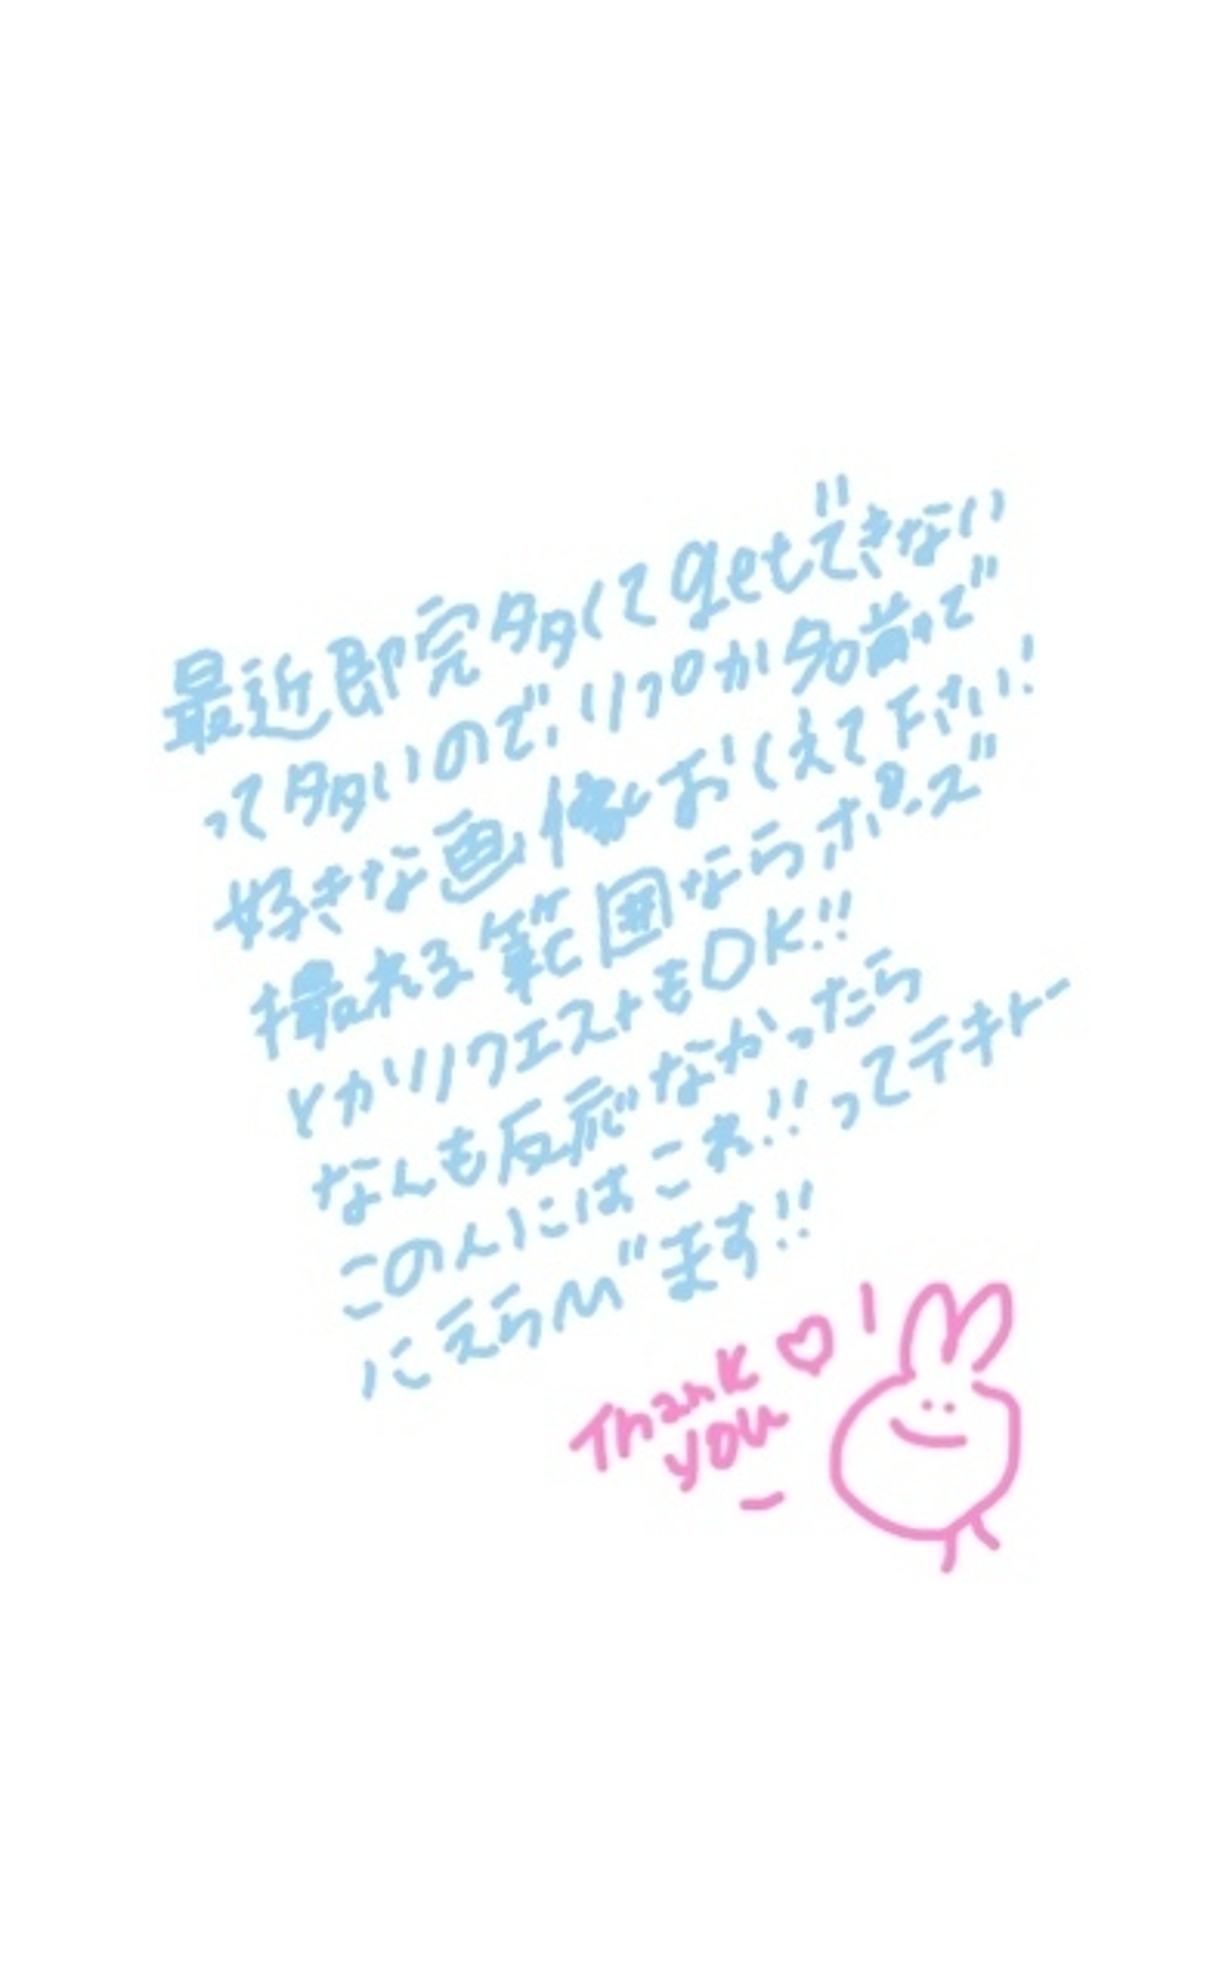 最近即完多くてgetできない
って多いので、リプか名前で
好きな画像おしえて下さい!
撮れる範囲ならポーズ
とかリクエストもOK!!
なんも反応なかったら
この人にはこれ!!ってテキトー
にえらんます!!
Thank
you